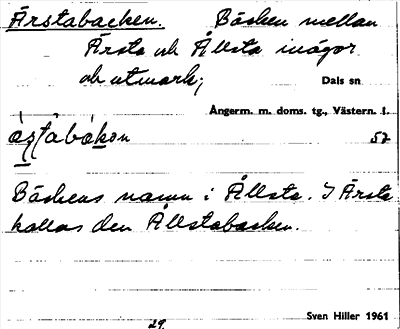 Ärstabacken. Bäcken mellan
Ärsta och Ållsta inägor
och utmark;
Dals sn
Ångerm. m. doms. tg., Västern. l.
52
Bäckens namn i Ållsta. I Ärsta
kallas den Ållstabacken.
Sven Hiller 1961
29